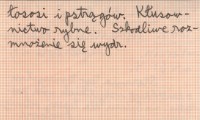 łososi i pstrągów. Kłusow-
nictwo rybne. Szkodliwe roz-
mnożenie się wydr.